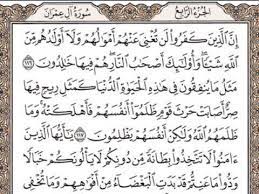 الجزء الرابع
سورة آل عمران
إِنَّ الَّذِينَ كَفَرُوا لَن تُغْنِيَ عَنْهُمْ أَمْوَالُهُمْ وَلَا أَوْلَادُهُم مِّنَ
اللَّهِ شَيْئًا وَأُولَٰئِكَ أَصْحَابُ النَّارِ هُمْ فِيهَا خَالِدُونَ ١١٦
مَثَلُ مَا يُنفِقُونَ فِي هَٰذِهِ الْحَيَاةِ الدُّنْيَا كَمَثَلِ رِيحٍ فِيهَا
صِرٌّ أَصَابَتْ حَرْثَ قَوْمٍ ظَلَمُوا أَنفُسَهُمْ فَأَهْلَكَتْهُ وَمَا
ظَلَمَهُمُ اللَّهُ وَلَٰكِنْ أَنفُسَهُمْ يَظْلِمُونَ ١١٧ يَا أَيُّهَا الَّذِينَ
آمَنُوا لَا تَتَّخِذُوا بِطَانَةً مِّن دُونِكُمْ لَا يَأْلُونَكُمْ خَبَالًا
وَدُّوا مَا عَنِتُّمْ قَدْ بَدَتِ الْبَغْضَاءُ مِنْ أَفْوَاهِهِمْ وَمَا تُخْفِي